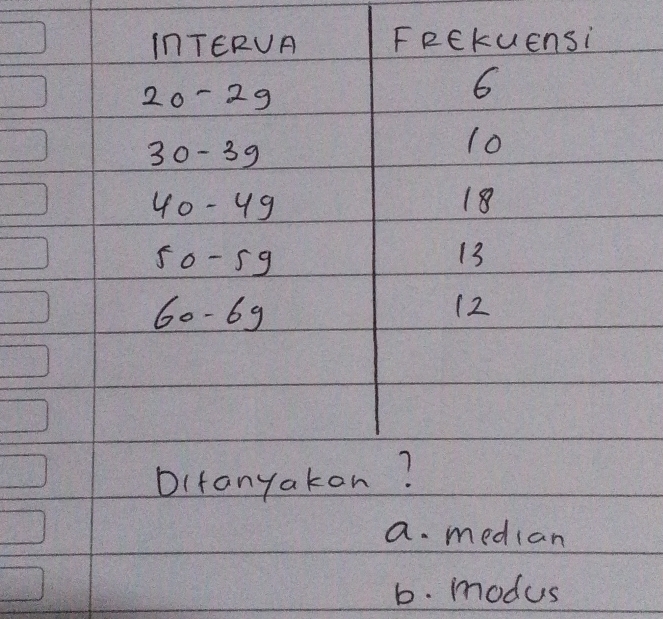 INTERVA FREKUENSI
20-29 6
30-39 10
40-49 18
50-59 13
60-69 12
Ditanyakan ?
a. median
b. modus